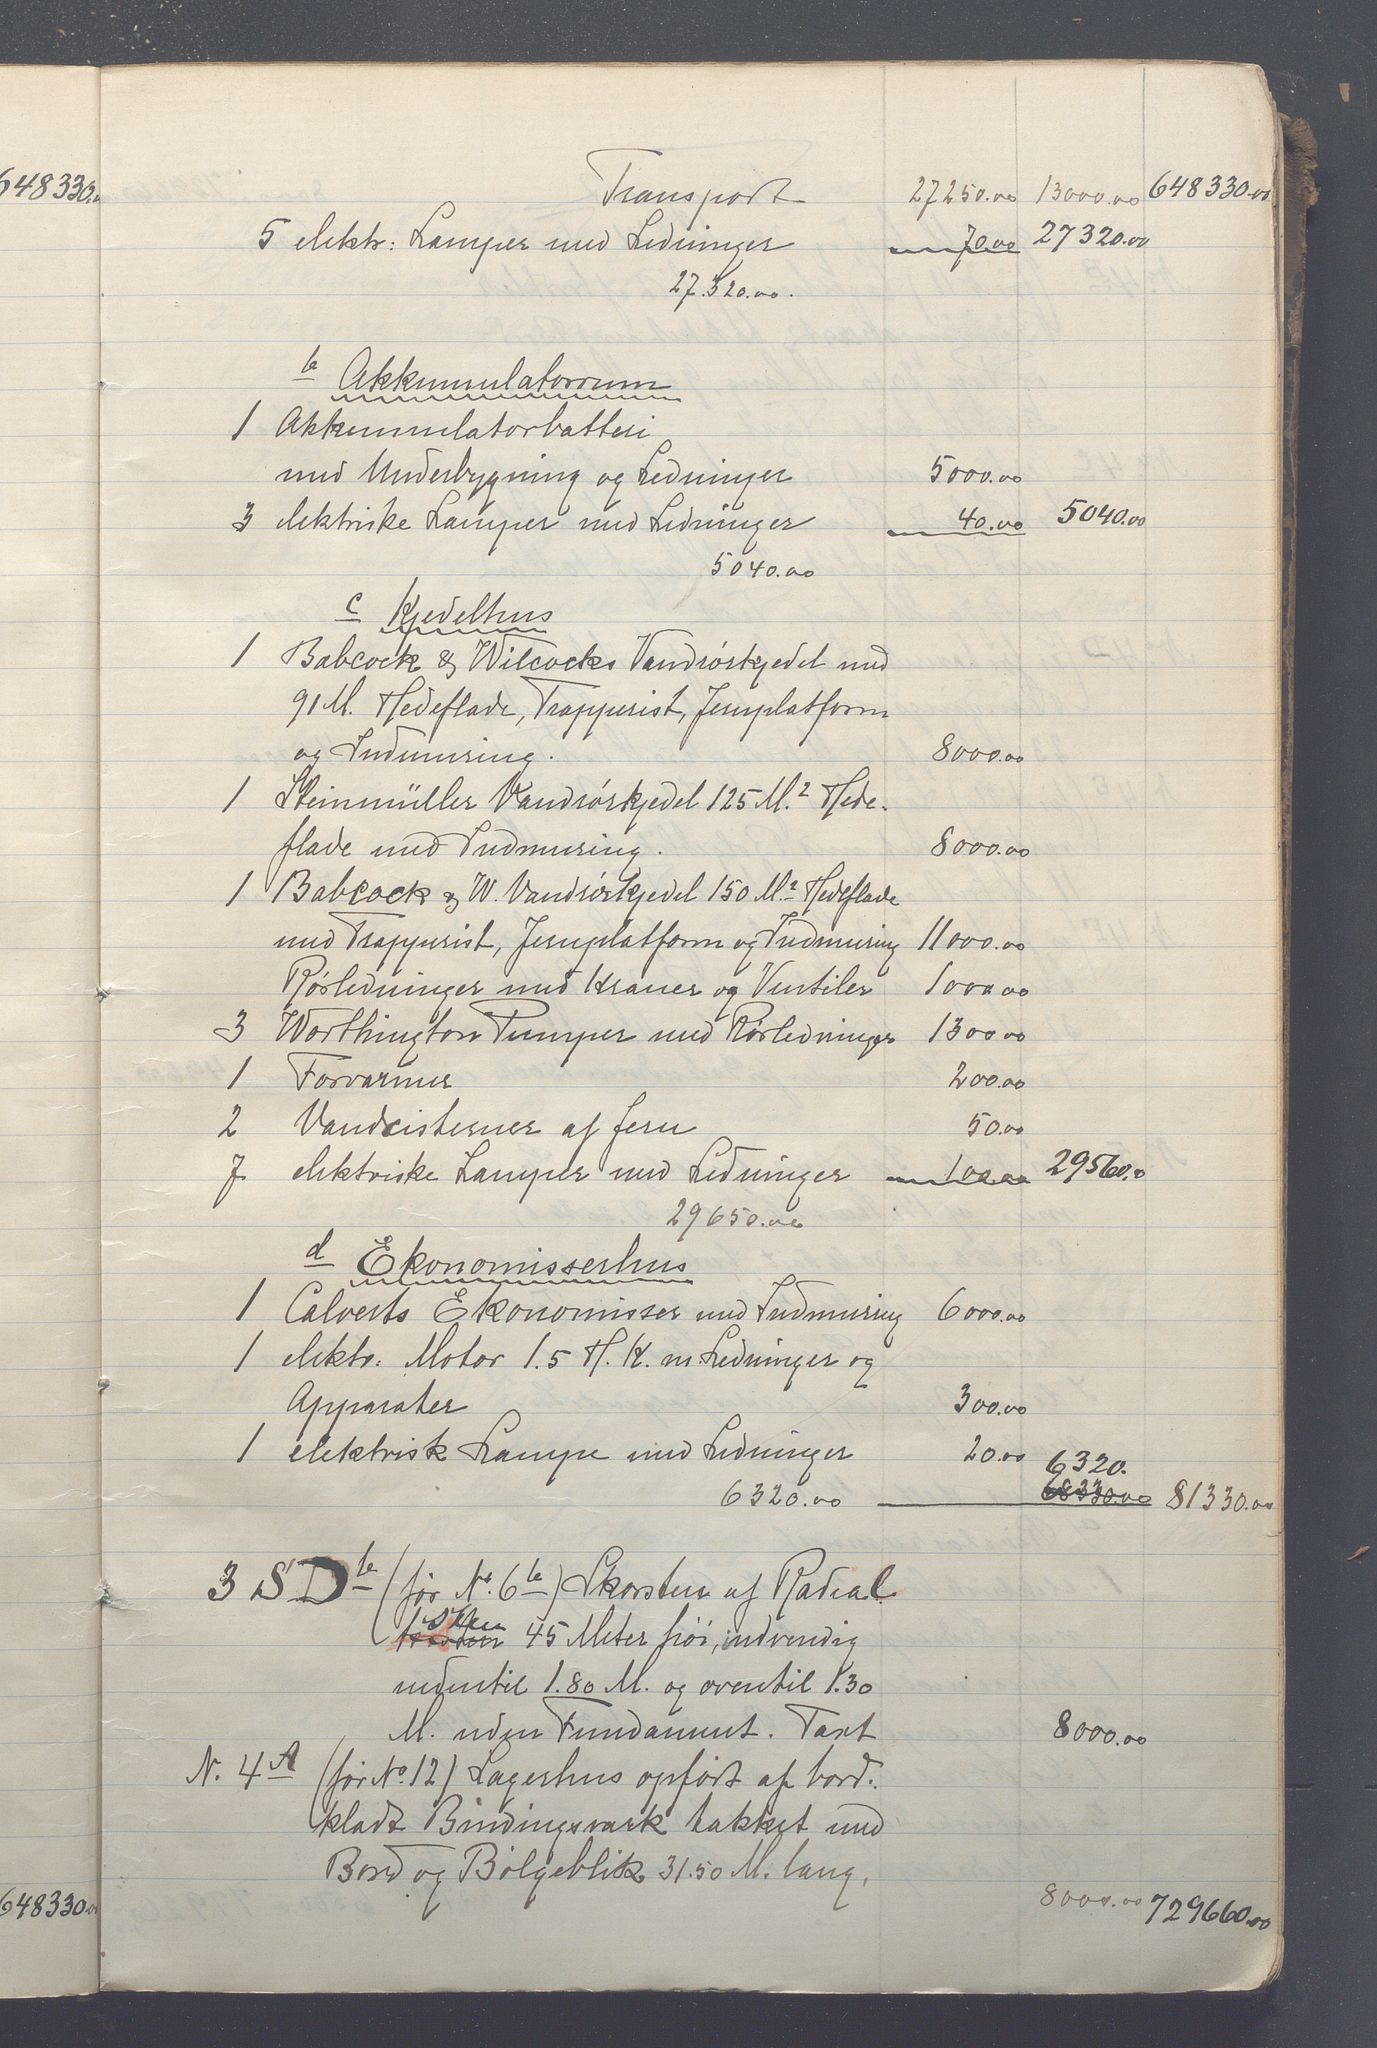 648330.00
Transport 27250.00 13000.00 648330.00
5 elektr: Lamper med Ledninger 70.00 27320.00
27.320.00.
b Akkumulatorrum
1 Akkumulatorbatteri
med Underbygning og Ledninger 5000.00
3 elektriske Lamper med Ledninger 40.00 5040.00
5040.00
c Kjedelhus
1 Babcock & Wilcocks Vandrørskjedel med
91 M. Hedeflade, Trapperist, Jernplatform
og Indmuring. 8000.00
1 Steinmüller Vandrørskjedel 125 M.² Hede-
flade med Indmuring. 8000.00
1 Babcock & W. Vandrørskjedel 150 M.² Hedeflade
med Trapperist, Jernplatform og Indmuring 11000.00
Rørledninger med Kraner og Ventiler 1000.00
3 Worthington Pumper med Rørledninger 1300.00
1 Forvarmer 200.00
2 Vandcisterner af Jern 50.00
7 elektriske Lamper med Ledninger 100.00 29560.00
29650.00
d Ekonomisserhus
1 Calverts Ekonomisser med Indmuring 6000.00
1 elektr: Motor 1.5 H.K. m Ledninger og
Apparater 300.00
1 elektrisk Lampe med Ledninger 20.00 6320.
6320.00 68330.00 81330.00
3 S D b (før No. 6 b) Skorsten af Radial
sten 45 Meter høi, indvendig
nedentil 1.80 M. og oventil 1.30
M. uden Fundament. Taxt 8000.00
N. 4 A (før No. 12) Lagerhus opført af bord-
klædt Bindingsværk takket med
Bord og Bølgeblik 31.50 M. lang,
648330.00 8000.00 729660.00